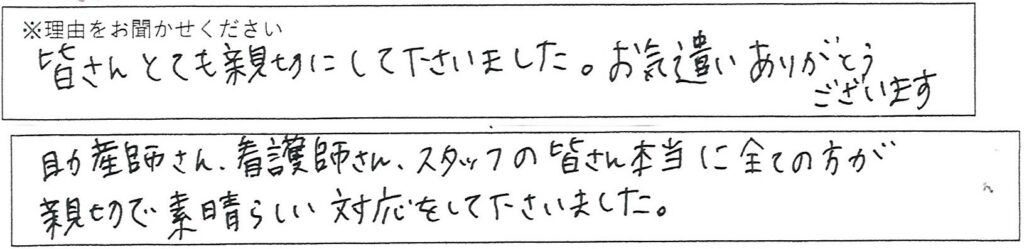 ※理由をお聞かせください
皆さんとても親切にして下さいました。お気遣いありがとう
ございます
助産師さん、看護師さん、スタッフの皆さん本当に全ての方が
親切で素晴らしい対応をして下さいました。